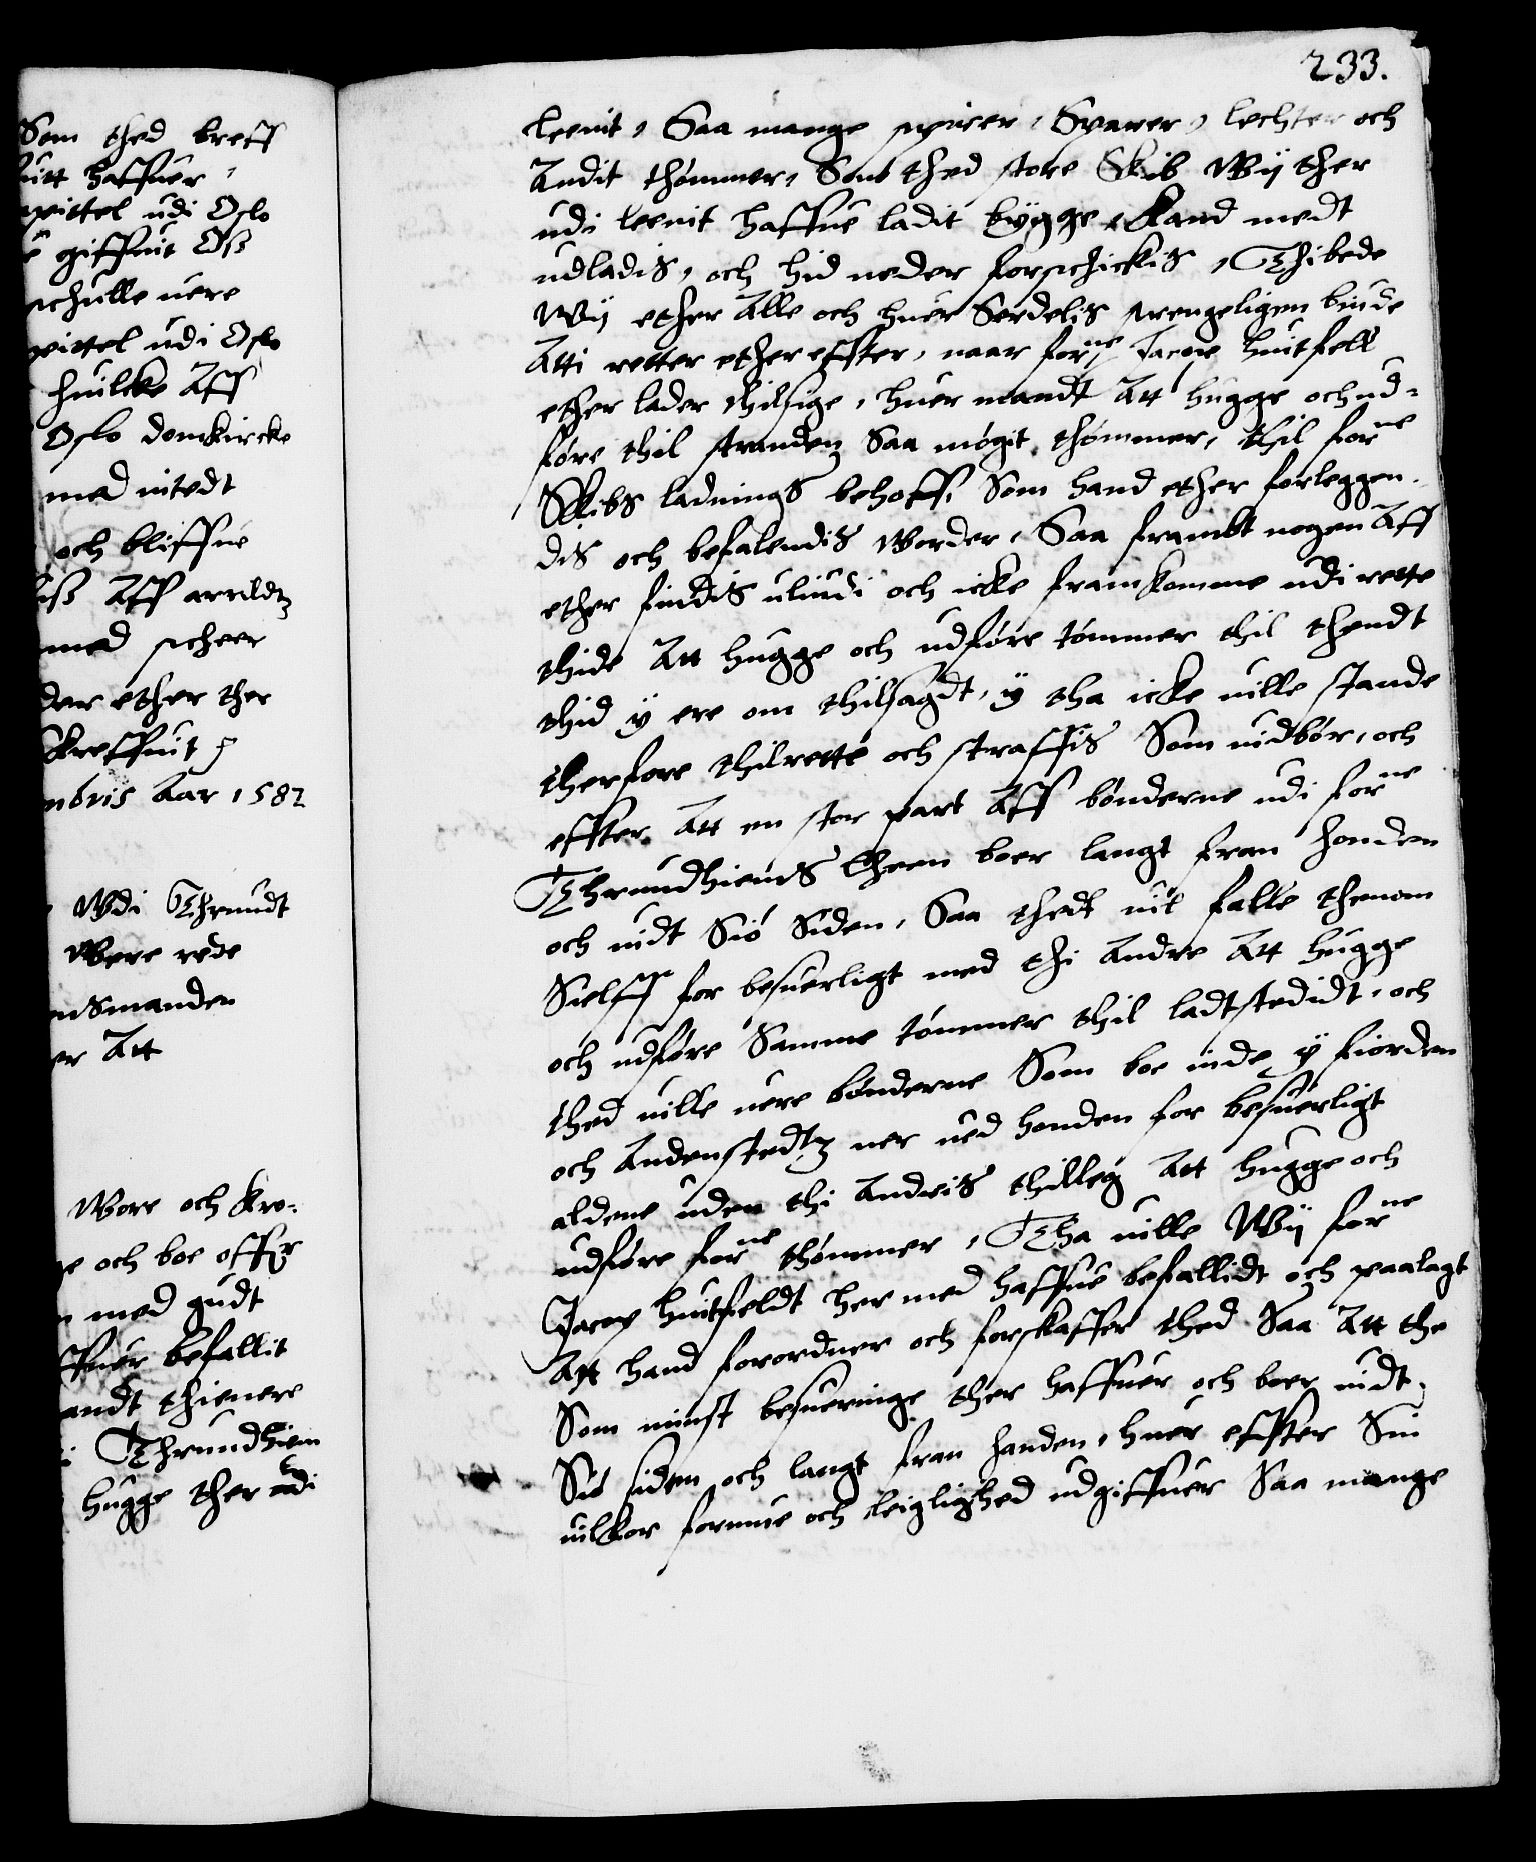 Som thed breff
uitt haffuer,
pittel udi Oslo
e giffuit Oss
schulle uere
pittel udi Oslo
huilcke Aff
Oslo domkircke
med uitedt
och bliffue
iss Aff arrildtz
med scheer
der ether ther
Skreffuit
mbris Aar 1582
Wdi Thrundt
Were rede
nsmanden
er Att
Wore och Kro-
e och boe offr
med gudt
ffuer befallit
andt thienere
Thrundhiem
hugge ther udi
233.
leenit, Saa mange spirer, Sparer, lechter och
Andit thømmer, Som thed store Skib Wij ther
udi leenit haffue ladit bygge, Kand medt
udladis, och hid neder forschickis, Thi bede
Wij ether Alle och huer Serdelis strengeligen biude
Atti retter ether effter, naar forne Jacop huitfelt
ether lader thilsige, huer mandt Att hugge och ud-
føre thil stranden Saa møgit thømmer, thil forne
Skibs ladnings behoff, Som hand ether forleggen-
dis och befalendis Worder, Saa frambt nogen Aff
ether findis uliudi och icke framkomme udi rette
thide Att hugge och udføre tømmer thil thendt
thid ij ere om thilsagdt, ij tha icke uille stande
therfore thilrette och straffis Som uidbør, och
effter Att en stor part Aff bønderne udi forne
Thrundhiems Leen boer langt fran honden
och uidt Siø Siden, Saa thedt uil falle thenom
Sielff for besuerligt med thi Andre Att hugge
och udføre Samme tømmer thil ladtstedidt, och
thed uille uere bønderne Som boe inde ij fiorden
och Andenstedtz ner ued honden for besuerligt
aldene uden thi Andris thilleg Att hugge och
udføre forne thømmer, Tha uille Wij forne
Jacop huitfeldt her med haffue befallidt och paalagt
Att hand forordner och forskaffer thed Saa Att the
Som minst besueringe ther haffuer och boer uidt
Siø siden och langt fran handen, huer effter Sin
uilkor formue och leiglighed udgiffuer Saa mange